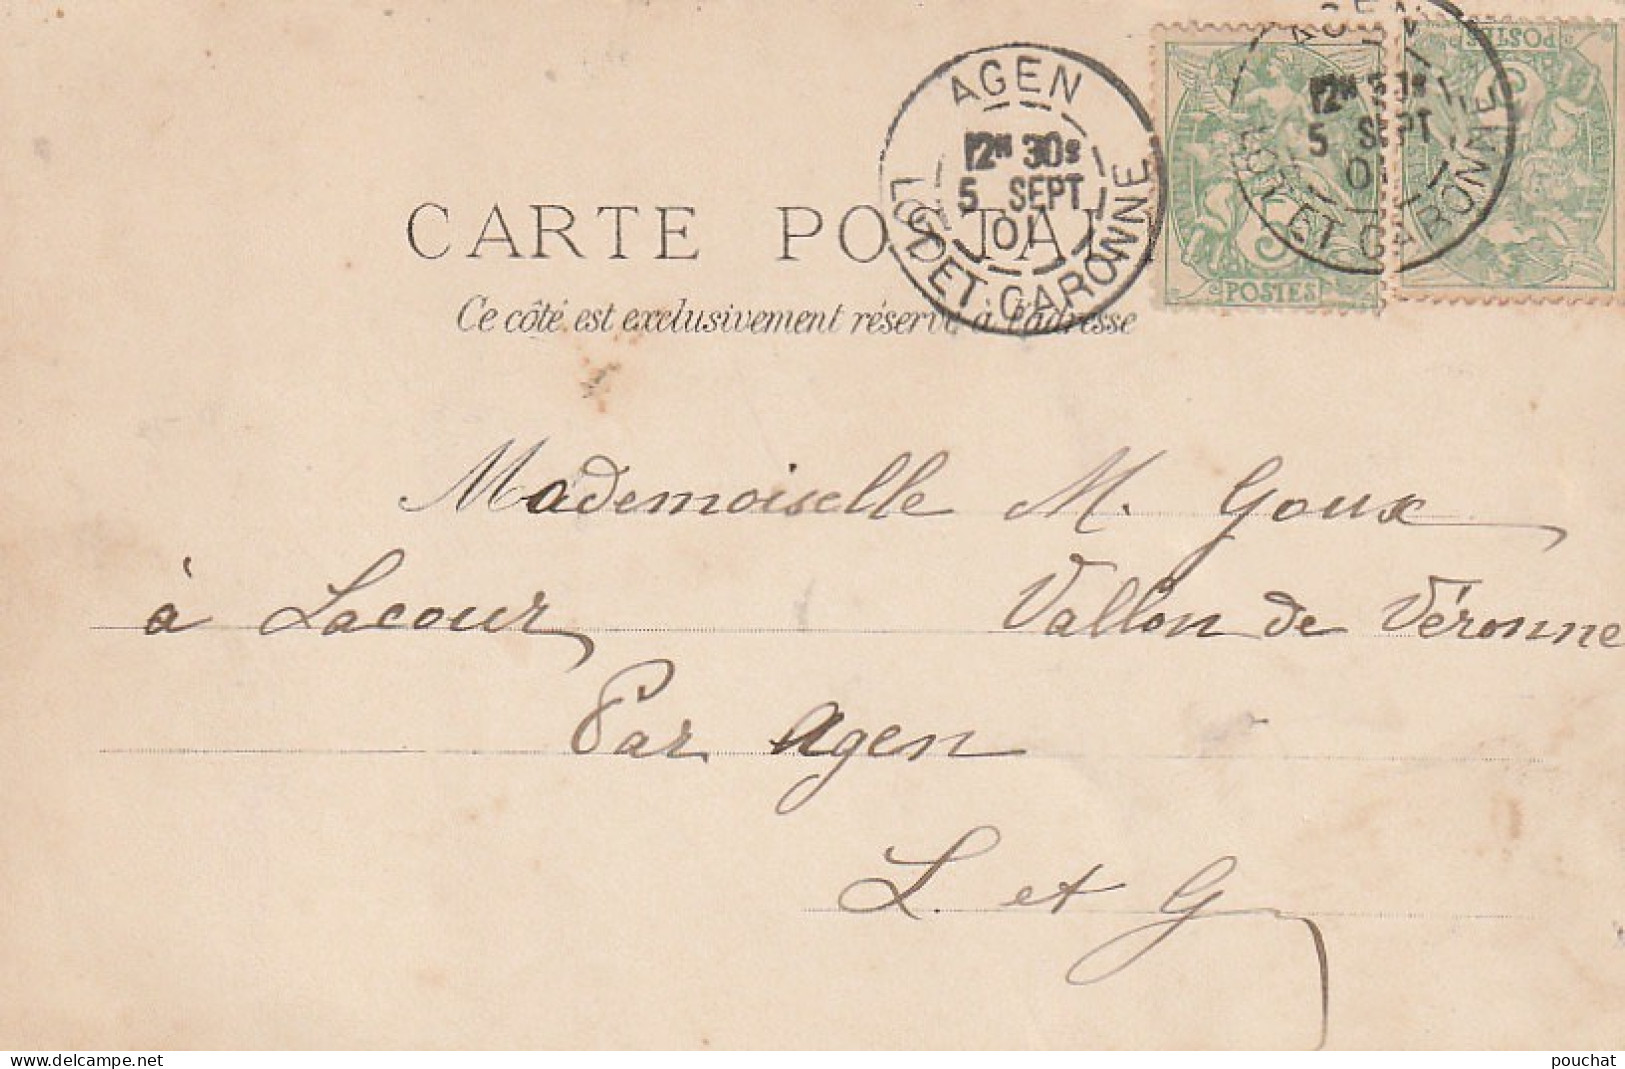 AGEN
12H 30s
5 SEPT
01
LOT-ET-GARONNE
AGEN
12H 30s
5 SEPT
01
LOT-ET-GARONNE
POSTES
POSTES
CARTE POSTALE
Ce côté est exclusivement réservé à l'adresse
Mademoiselle M. Goux
à Lacour Vallon de Véronne
Par Agen
L. et G
www.delcampe.net
pouchat